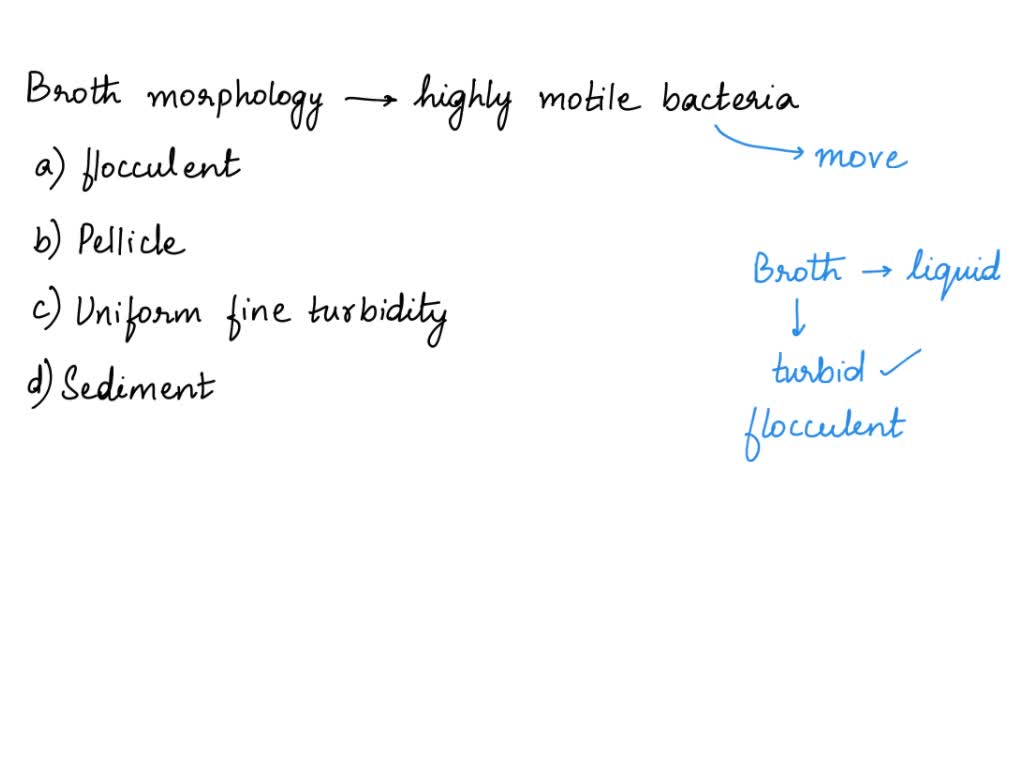 Broth morphology → highly motile bacteria
→ move
a) flocculent
b) Pellicle
c) Uniform fine turbidity
d) Sediment
Broth → liquid
↓
turbid ✓
flocculent